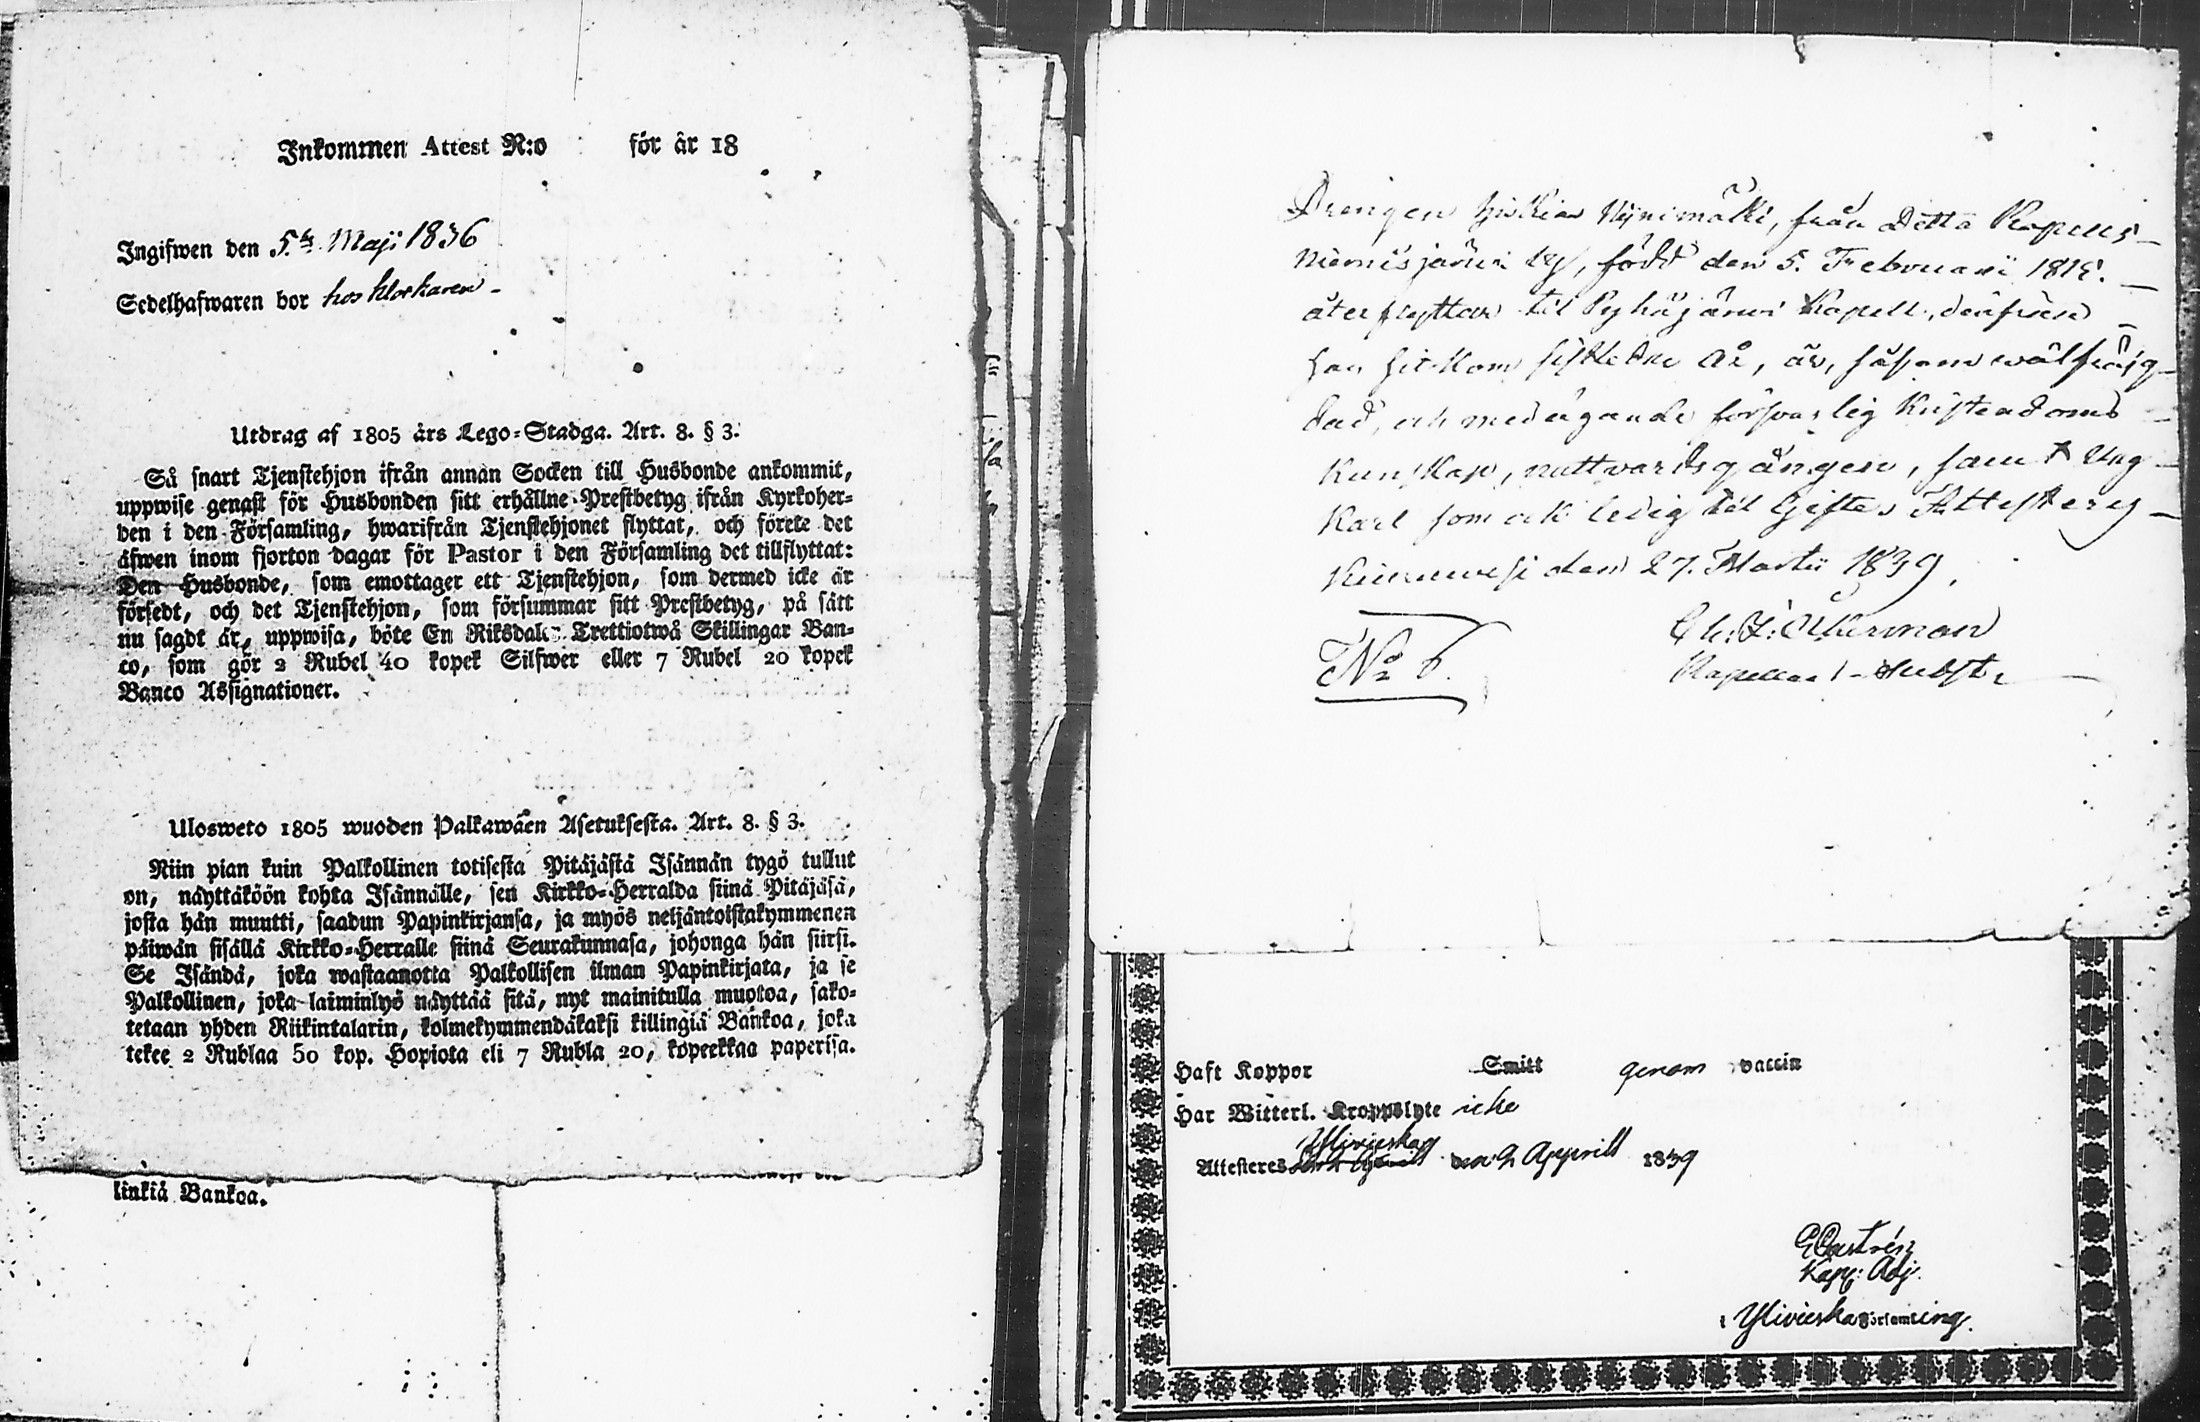 Inkommen Attest N:o för år 18
Ingifwen den 5te Maji 1836
Sedelhafwaren bor hos klockaren
Utdrag af 1805 års Lego-Stadga. Art. 8. § 3.
Så snart Tjenstehjon ifrån annan Socken till Husbonde ankommit,
uppwise genast för Husbonden sitt erhållne Prestbetyg ifrån Kyrkoher-
den i den Församling, hwarifrån Tjenstehjonet flyttat, och förete det
äfwen inom fjorton dagar för Pastor i den Församling det tillflyttat:
Den Husbonde, som emottager ett Tjenstehjon, som dermed icke är
försedt, och det Tjenstehjon, som försummar sitt Prestbetyg, på sätt
nu sagdt är, uppwisa, böte En Riksdaler Trettiotwå Skillingar Ban-
co, som gör 2 Rubel 40 kopek Silfwer eller 7 Rubel 20 kopek
Banco Assignationer.
Ulosweto 1805 wuoden Palkawäen Asetuksesta. Art. 8. § 3.
Niin pian kuin Palkollinen totisesta Pitäjästä Isännän tygö tullut
on, näyttäköön kohta Isännälle, sen Kirkko-Herralda siinä Pitäjäsä,
josta hän muutti, saadun Papinkirjansa, ja myös neljäntoistakymmenen
päiwän sisällä Kirkko-Herralle siinä Seurakunnasa, johonga hän siirsi.
Se Isändä, joka wastaanotta Palkollisen ilman Papinkirjata, ja se
Palkollinen, joka laiminlyö näyttää sitä, nyt mainitulla muotoa, sako-
tetaan yhden Riikintalarin, kolmekymmendäkaksi killingiä Bankoa, joka
tekee 2 Rublaa 50 kop. Hopiota eli 7 Rubla 20, kopeekkaa paperisa.
linkiä Bankoa.
Drengen Hiskias Nynimäki, från Detta Kapells
Niemisjärwi by, född den 5. Februarii 181
återflyttar til Pyhäjärwi Kapell, därifrån
han hitkom sistledne År, är, såsom wälfräjg-
dad, och medägande förswarlig Kristendoms
Kunskap, nattwardsgången, samt Ung-
Karl som ock ledig til Gifte, Attesterer
den 27. Martii 1839.
Åkerman
Kapellans Subst.
No 6.
Haft Koppor Smitt genom vaccin
Har Witterl. Kroppslyte icke
Ylivieska
Attesteres den 2 Apprill 1839
E Castrén
Kap: Adj.
i Ylivieska Församling.